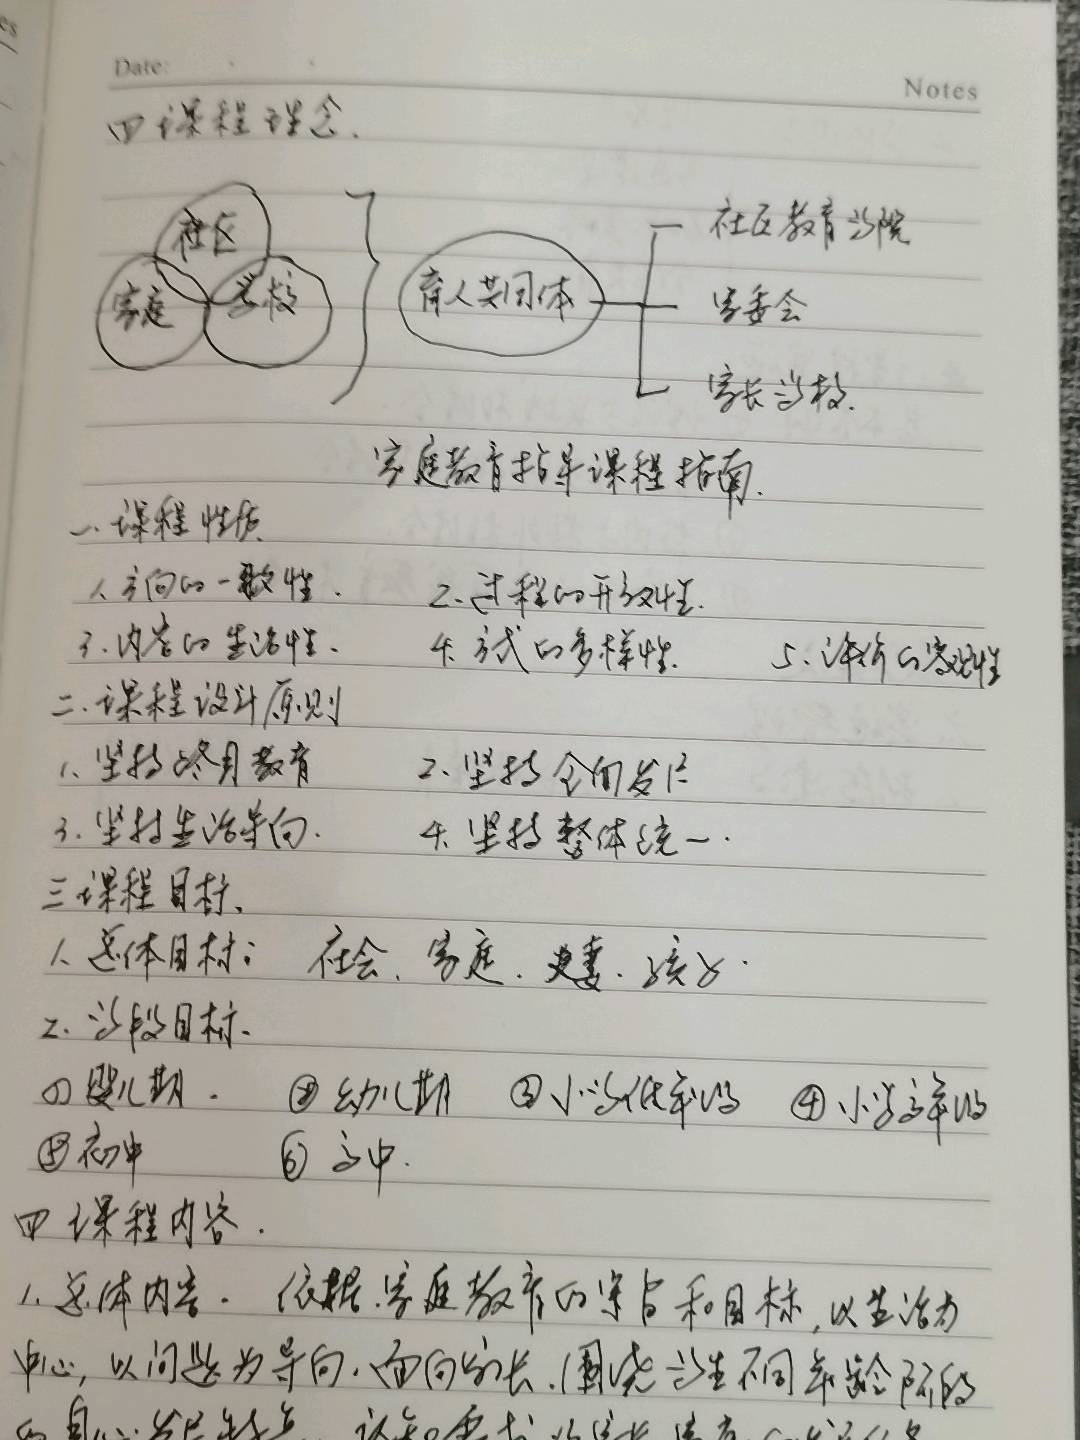 Date:
Notes
四 课程理念.
社区
家庭 学校
育人共同体
社区教育学院
家委会
家长学校.
家庭教育指导课程指南.
一. 课程性质
1. 方向的一致性. 2. 过程的开放性.
3. 内容的生活性. 4. 方式的多样性. 5. 评价的客观性
二. 课程设计原则
1. 坚持终身教育 2. 坚持全面发展
3. 坚持生活导向. 4. 坚持整体统一.
三 课程目标.
1. 总体目标: 社会. 家庭. 夫妻. 孩子.
2. 学段目标.
① 婴儿期. ② 幼儿期 ③ 小学低年段 ④ 小学高年段
⑤ 初中 ⑥ 高中.
四 课程内容.
1. 总体内容. 依据家庭教育的宗旨和目标, 以生活为
中心, 以问题为导向. 面向家长. 围绕学生不同年龄阶段
的身心发展特点.